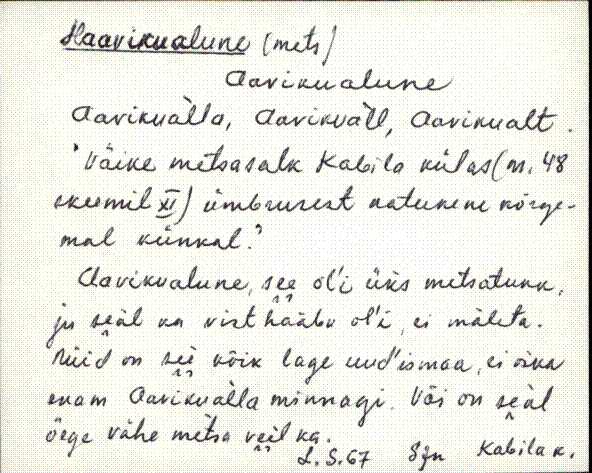 Haavikualune (mets)
Aavikualune
Aavikuàlla, Aavikuàll, Aavikualt.
"Väike metsasalk Kabila külas (nr. 48
skeemil XI) ümbrusest natukene kõrge-
mal künkal."
Aavikualune, see ol'i üks metsatukk,
ju seàl ka vist hääbu ol'i, ei mäleta.
Nüid on see kõik lage uud'ismaa, ei oska
enam Aavikuàlla minnagi. Või on seàl
õege vähe metsa veel ka.
L. S. 67 Sjn Kabila k.